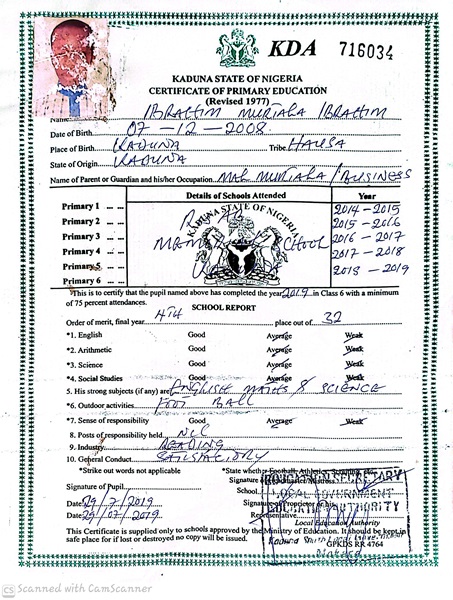 KDA 716034
KADUNA STATE OF NIGERIA
CERTIFICATE OF PRIMARY EDUCATION
(Revised 1977)
Name IBRAHIM MURTALA IBRAHIM
Date of Birth 07-12-2008
Place of Birth KADUNA Tribe HAUSA
State of Origin KADUNA
Name of Parent or Guardian and his/her Occupation MAL MURTALA / BUSINESS
Details of Schools Attended Year
Primary 1 2014-2015
Primary 2 2015-2016
Primary 3 SCHOOL 2016-2017
Primary 4 2017-2018
Primary 5 2018-2019
Primary 6
KADUNA STATE OF NIGERIA
This is to certify that the pupil named above has completed the year 2019 in Class 6 with a minimum
of 75 percent attendances.
SCHOOL REPORT
Order of merit, final year 4TH place out of 32
*1. English Good Average Weak
*2. Arithmetic Good Average Weak
*3. Science Good Average Weak
*4. Social Studies Good Average Weak
5. His strong subjects (if any) are ENGLISH MATHS & SCIENCE
*6. Outdoor activities FOOT BALL
*7. Sense of responsibility Good Average Weak
8. Posts of responsibility held NIL
9. Industry READING
10. General Conduct SATISFACTORY
*Strike out words not applicable *State whether Football, Athletics,
Signature of
Signature of Pupil School
Signature of Proprietor or
Date 29/7/2019 Representative
Date 29/07/2019 Local Education Authority
EDUCATION SECRETARY
LOCAL GOVERNMENT
EDUCATION AUTHORITY
This Certificate is supplied only to schools approved by the Ministry of Education. It should be kept in
safe place for if lost or destroyed no copy will be issued.
GPKDS RR 4764
CS Scanned with CamScanner